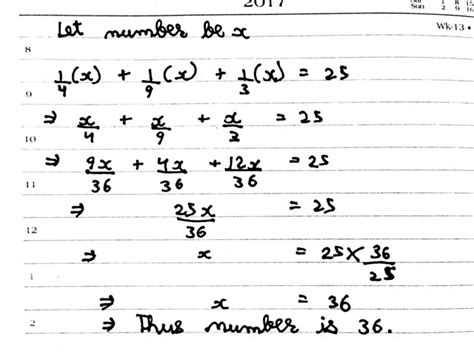 2017
Sun 1 8 15
2 9 16
Wk-13 •
Let number be x
8
1/4 (x) + 1/9 (x) + 1/3 (x) = 25
9
⇒ x/4 + x/9 + x/3 = 25
10
⇒ 9x/36 + 4x/36 + 12x/36 = 25
11
⇒ 25x/36 = 25
12
⇒ x = 25 × 36/25
1
⇒ x = 36
2 ⇒ Thus number is 36.